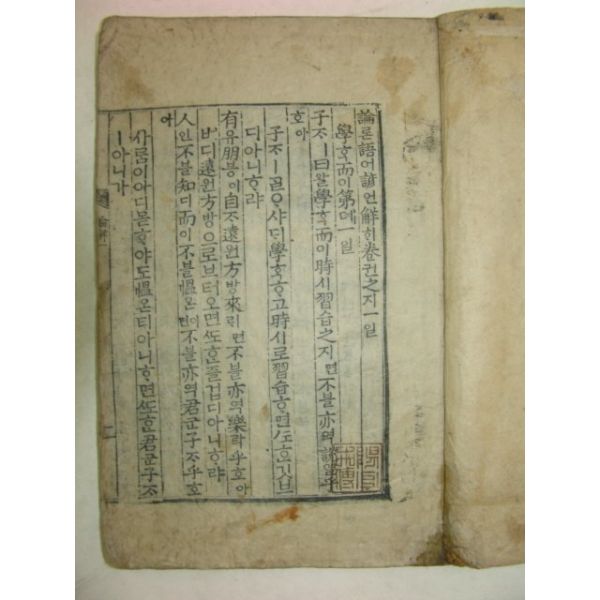 論론語어諺언解ᄒᆡ卷권之지一일
學ᄒᆞᆨ而이第뎨一일
子ᄌᆞㅣ曰왈學ᄒᆞᆨ而이時시習습之지면不블亦역說열乎
호아
子ᄌᆞㅣᄀᆞᆯᄋᆞ샤ᄃᆡ學ᄒᆞᆨᄒᆞ고時시로習습ᄒᆞ면ᄯᅩᄒᆞᆫ깃브
디아니ᄒᆞ랴
有유朋븡이自ᄌᆞ遠원方방來ᄅᆡ면不블亦역樂락乎호아
버디遠원方방으로브터오면ᄯᅩᄒᆞᆫ즐겁디아니ᄒᆞ랴
人인不블知디而이不블慍온이면不블亦역君군子ᄌᆞ乎호
아
사ᄅᆞᆷ이아디몯ᄒᆞ야도慍온티아니ᄒᆞ면ᄯᅩᄒᆞᆫ君군子ᄌᆞ
ㅣ아니가